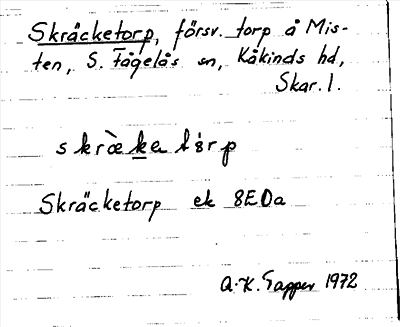 Skräcketorp, försv. torp å Mis-
ten, S. Fågelås sn, Kåkinds hd,
Skar. l.
skrä̀ke tårp
Skräcketorp ek 8E0a
A.K. Tapper 1972